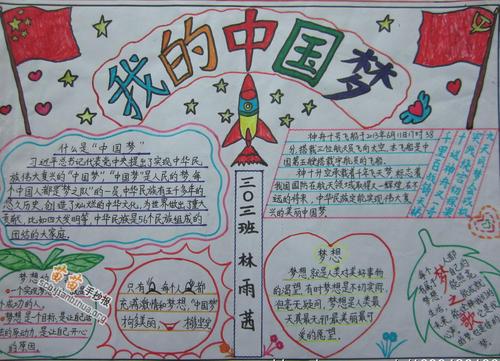 我的中国梦
什么是“中国梦”
习近平总书记代表党中央提出了实现中华民
族伟大复兴的“中国梦”“中国梦”是人民的梦,每
个中国人都是“梦之队”的一员,中华民族有五千多年的
悠久历史,创造了灿烂的中华文化,为世界做出了重大
贡献,比如四大发明等,中华民族是56个民族组成的
团结的大家庭.
神舟十号飞船于2013年6月11日17时38
分,搭载三位航天员飞向太空,本飞船是中
国第五艘搭载宇航员的飞船.
神十升空承载着千年飞天梦,标志着
我国国防及航天领域取得又一辉煌,在不
远的将来,中华民族定能实现伟大复
兴的美丽中国梦
三〇三班 林雨茜
梦想
梦想,就是人类对美好事物
的渴望,有时梦想是不切实际,
但毫无疑问,梦想是人类最
天真最无邪最美丽最可
爱的愿望.
梦想
一个实现
成功的人.
梦想是一个目标,是让自己活
的原动力,是让自己开心
的原因.
只有每个人都
充满激情和梦想,“中国梦”
苗苗手抄报
梦之歌